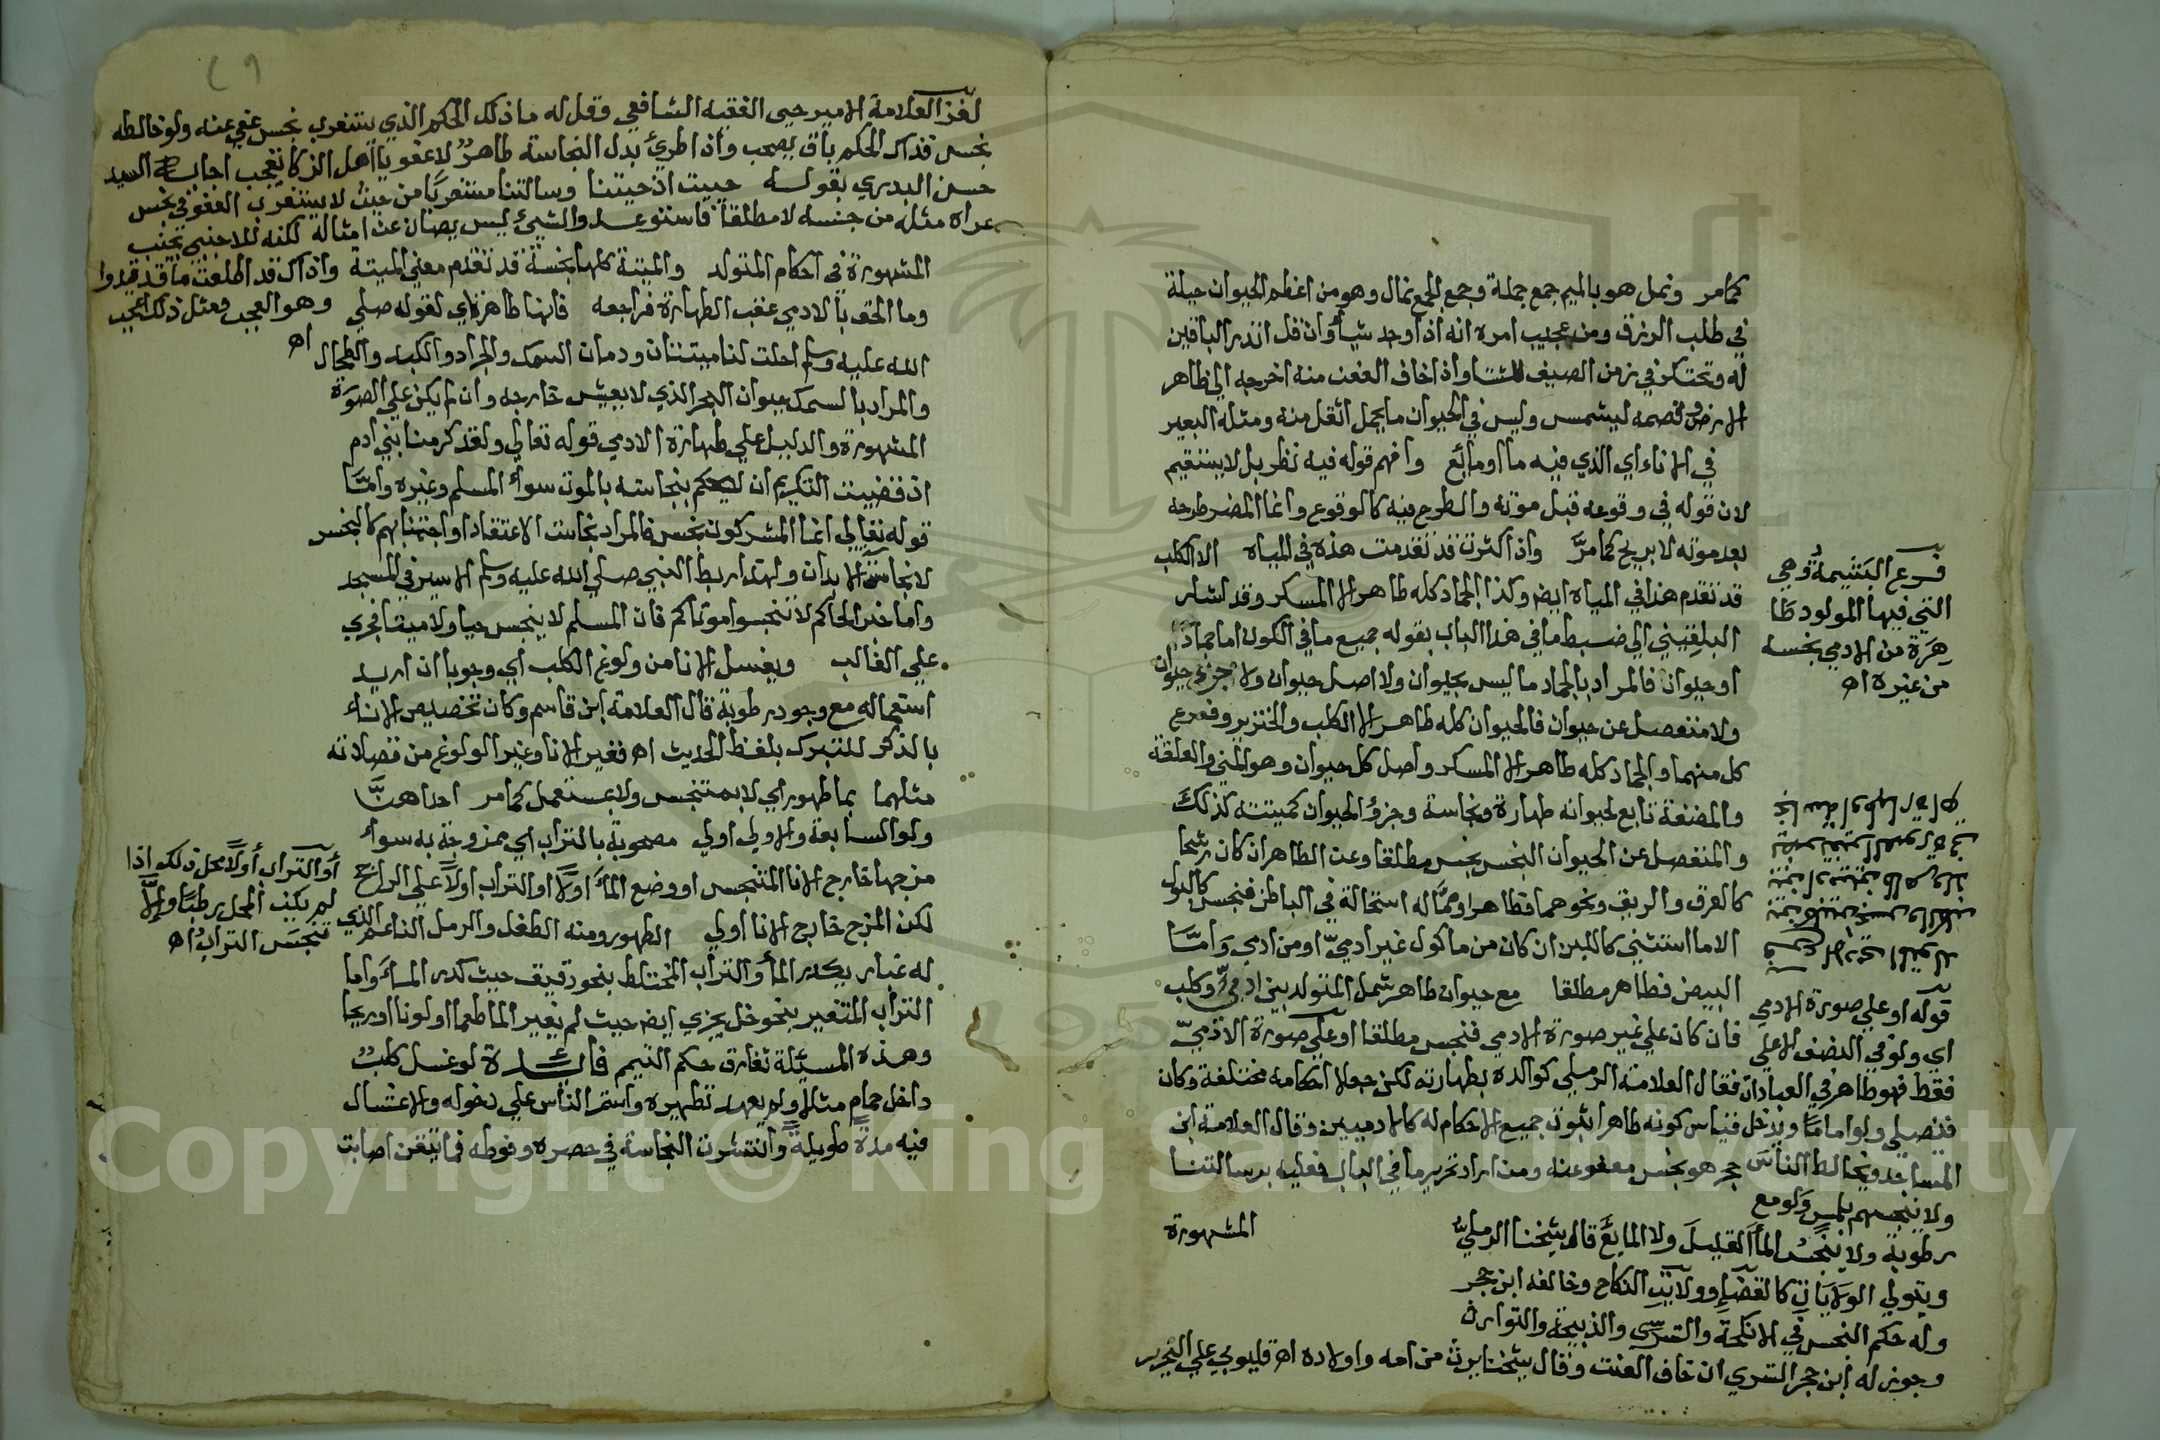 كمامر ونمل هو بالميم جمع نملة وجمع الجمع نمال وهو من اعظم الحيوان حيلة
في طلب الرزق ومن عجيب امره انه اذا وجد شيأ وان قل انذر الباقين
له ويحتكر في زمن الصيف للشتا واذا خاف العفن منه اخرجه الي ظاهر
الارض وقصمه ليشمس وليس في الحيوان ما يحمل اثقل منه ومثله البعير
في الاناء اي الذي فيه ما او مائع وافهم قوله فيه نظر بل لا يستقيم
لان قوله في وقوعه قبل موته والطرح فيه كالوقوع وانما المضر طرحه
بعد موته لا بريح كما مرَّ واذا كثرت قد تقدمت هذه في المياه الا الكلب
قد تقدم هذا في المياه ايض وكذا الجماد كله طاهر الا المسكر وقد اشار
البلقيني الي ضبط ما في هذا الباب بقوله جميع ما في الكون اما جماد
او حيوان فالمراد بالجماد ما ليس بحيوان ولا اصل حيوان ولا جزء حيوان
ولا منفصل عن حيوان فالحيوان كله طاهر الا الكلب والخنزير وفرع
كل منهما والجماد كله طاهر الا المسكر واصل كل حيوان وهو المني والعلقة
والمضغة تابع لحيوانه طهارة ونجاسة وجزؤ الحيوان كميتته كذلك
والمنفصل عن الحيوان النجس نجس مطلقا وعن الطاهر ان كان رشحا
كالعرق والريق ونحوهما فطاهر او مما له استحالة في الباطن فنجس كالبول
الا ما استثني كاللبن ان كان من ماكول غير ادميّ او من ادمي وامَّا
البيض فطاهر مطلقا مع حيوان طاهر شمل المتولد بين ادميّ وكلب
فان كان علي غير صورة الادمي فنجس مطلقا او علي صورة الادميّ
فقال العلامة الرملي كوالده بطهارته لكن جعلا احكامه مختلفة وكان
قياس كونه طاهرا ثبوت جميع الاحكام له كالادميين وقال العلامة ابن
حجر هو نجس معفو عنه ومن اراد تحرير ما في البال فعليه برسالتنا
المشهورة
فرع المشيمة وهي
التي فيها المولود طا
هرة من الادمي نجسه
من غيره اه
قوله او علي صورة الادمي
اي ولو في النصف الاعلي
فقط فهو طاهر في العبادات
فتصلي ولو اماما ويدخل
المساجد ويخالط الناس
ولا ينجسهم بلمس ولو مع
رطوبة ولا ينجس الماأ القليل ولا المايع قاله شيخنا الرمليّ
ويتولي الولايات كالقضاء وولاية النكاح وخالفه ابن حجر
وله حكم النجس في الانكحة والتسري والذبيحة والتوارث
وجوز له ابن حجر التسري ان خاف العنت وقال شيخنا يرث من امه واولاده اه قليوبي علي التحرير
٢٩
لغز العلامة الامير حيى الفقيه الشافعي وقل له ما ذلك الحكم الذي يستغرب نجس عفي عنه ولو خالطه
نجس فذاك الحكم باق يصحب واذا طرئ بدل النجاسة طاهرٌ لا عفو يا اهل الذكا تعجب اجابه السيد
حسن البدري بقوله حييت اذ حيتنا وسالتنا مستغربًا من حيث لا يستغرب العفو في نجس
عراه مثله من جنسه لا مطلقا فاستوعبوا والشيئ ليس يصان عن امثاله لكنه للاجنبي يجنب
واذاك قد اطلعت ما قد قيدوا
وهو العجب ومثل ذلك اعجب
اه
المشهورة في احكام المتولد والميتة كلها نجسة قد تقدم معني الميتة
وما الحق بالادمي عقب الطهارة فراجعه فانها طاهرة اي لقوله صلي
الله عليه وسلم احلت لنا ميتتان ودمان السمك والجراد والكبد والطحال
والمراد بالسمك حيوان البحر الذي لا يعيش خارجه وان لم يكن علي الصورة
المشهورة والدليل علي طهارة الادمي قوله تعالي ولقد كرمنا بني ادم
اذ قضيت التكريم ان لا يحكم بنجاسته بالموت سوأ المسلم وغيره وامَّا
قوله تعالي انما المشركون نجس فالمراد نجاست الاعتقاد او اجتنابهم كالنجس
لا نجاسة الابدان ولهذا ربط النبي صلي الله عليه وسلم الاسير في المسجد
واما خبر الحاكم لا تنجسوا موتاكم فان المسلم لا ينجس حيا ولا ميتا فجري
علي الغالب ويغسل الانا من ولوغ الكلب اي وجوبا ان اريد
استعماله مع وجود رطوبة قال العلامة ابن قاسم وكان تخصيص الاناء
بالذكر للتبرك بلفظ الحديث اه فغير الانا وغير الولوغ من فضلاته
مثلهما بما طهور اي لا بمتنجس ولا بمستعمل كمامر احداهنَّ
ولو السابعة والاولي اولي مصحوبة بالتراب اي ممزوجة به سواء
مزجها خارج الانا المتنجس او وضع الماَ اولا او التراب اولاً علي الراجح
لكن المزج خارج الانا اولي الطهور ومنه الطفل والرمل الناعم الذي
له غبار يكدر الماأ والتراب المختلط بنحو دقيق حيث كدر الماَ واما
التراب المتغير بنحو خل يجزي ايض حيث لم يغير الما طعما اولونا او ريحا
وهذه المسيئلة تفارق حكم التيمم فائدة لو غسل كلبٌ
داخل حمام مثلا ولم يعهد تطهيره واستمر الناس علي دخوله والاغتسال
فيه مدة طويلة وانتشرت النجاسة في حصره وفوطه فما تيقن اصابت
أو التراب أولاً محل ذلك اذا
لم يكن المحل رطبا والّا
تنجس التراب اه
Copyright © King Saud University